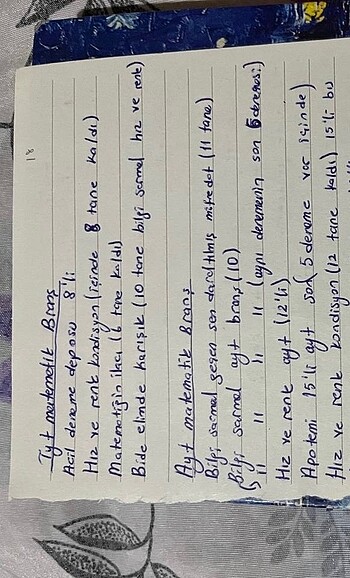 18
Tyt matematik Brans
Acil deneme deposu 8'li
Hız ve renk kondisyon (içinde 8 tane kaldı)
Matematiğin ilacı (6 tane kaldı)
Bide elimde karışık (10 tane bilgi sarmal hız ve renk)
Ayt matematik Branş
Bilgi sarmal geçen sen daraltılmış müfredat (11 tane)
Bilgi sarmal ayt branş (10)
11 11 11 11 (aynı denemenin son 5 denemesi)
Hız ve renk ayt (12'li)
Apotemi 15'li ayt son 5 deneme var içinde)
Hız ve renk kondisyon (12 tane kaldı) 15'li bu